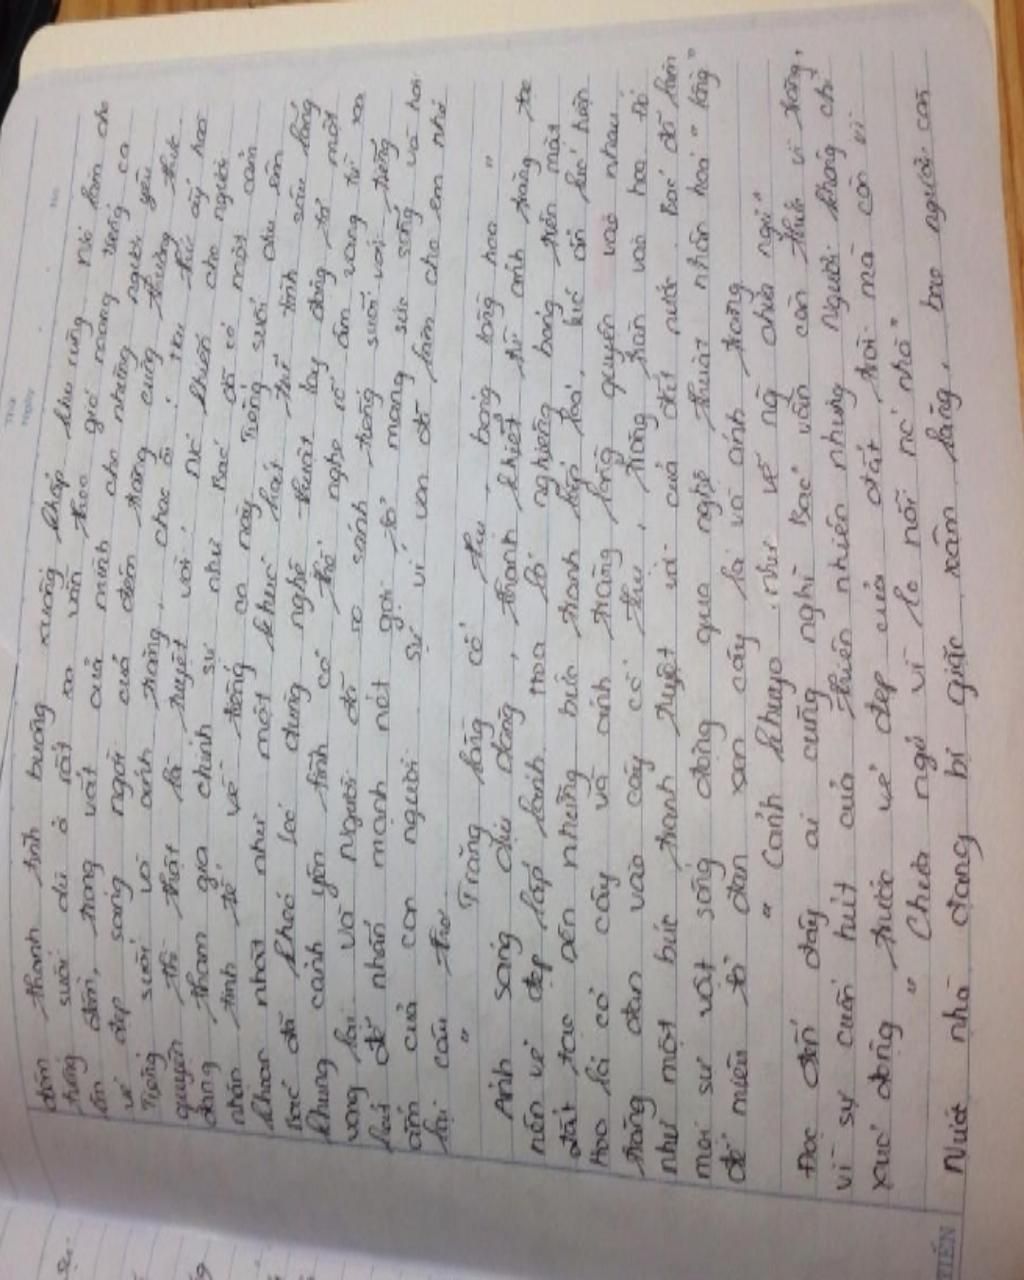 Thứ
Ngày
No.
đêm thanh tịnh buông xuống khắp khu rừng nó làm cho
tiếng suối dù ở rất xa vẫn theo gió mang tiếng ca
ẩn, trong vắt của mình cho những người yêu
vẻ đẹp sáng ngời của đêm trăng cùng thưởng thức
Tiếng suối và ánh trăng, chao ôi! Hai thứ ấy hoà
quyện thì thật là tuyệt vời, nó khiến cho người
đang tham gia chính sự như Bác đã có một cảm
nhận tinh tế về tiếng ca này. Tiếng suối êm
khoan nhặt như một khúc hát trữ tình sâu lắng
Bác đã khéo léo dùng nghệ thuật lấy động tả
khung cảnh yên tĩnh có thể nghe rõ âm vang từ xa
vọng lại và Người đã so sánh tiếng suối với tiếng
hát để nhấn mạnh nét gợi tả mang sức sống và hơi
ấm của con người. Sự ví von đó làm cho em nhớ
lại câu thơ
" Trăng lồng cổ thụ, bóng lồng hoa "
Ánh sáng dịu dàng, thanh khiết từ ánh trăng tạo
nên vẻ đẹp lấp lánh. Hoa lá nghiêng bóng trên mặt
đất tạo nên những bức tranh lấp loá, lúc ẩn lúc hiện
Hoa lá cỏ cây và ánh trăng lồng quyện vào nhau.
trăng đan vào cây cổ thụ, trăng tràn vào hoa lá
như một bức tranh tuyệt vời của đất nước. Bác đã làm
mọi sự vật sống động qua nghệ thuật nhân hoá " lồng "
để miêu tả đan xen cây lá và ánh trăng
" Cảnh khuya như vẽ người chưa ngủ "
Đọc đến đây ai cũng nghĩ Bác vẫn còn thức vì trăng,
vì sự cuốn hút của thiên nhiên nhưng Người không chỉ
xúc động trước vẻ đẹp của đất trời mà còn vì
" Chưa ngủ vì lo nỗi nước nhà "
Nước nhà đang bị giặc xâm lăng, bao người còn
TIẾN